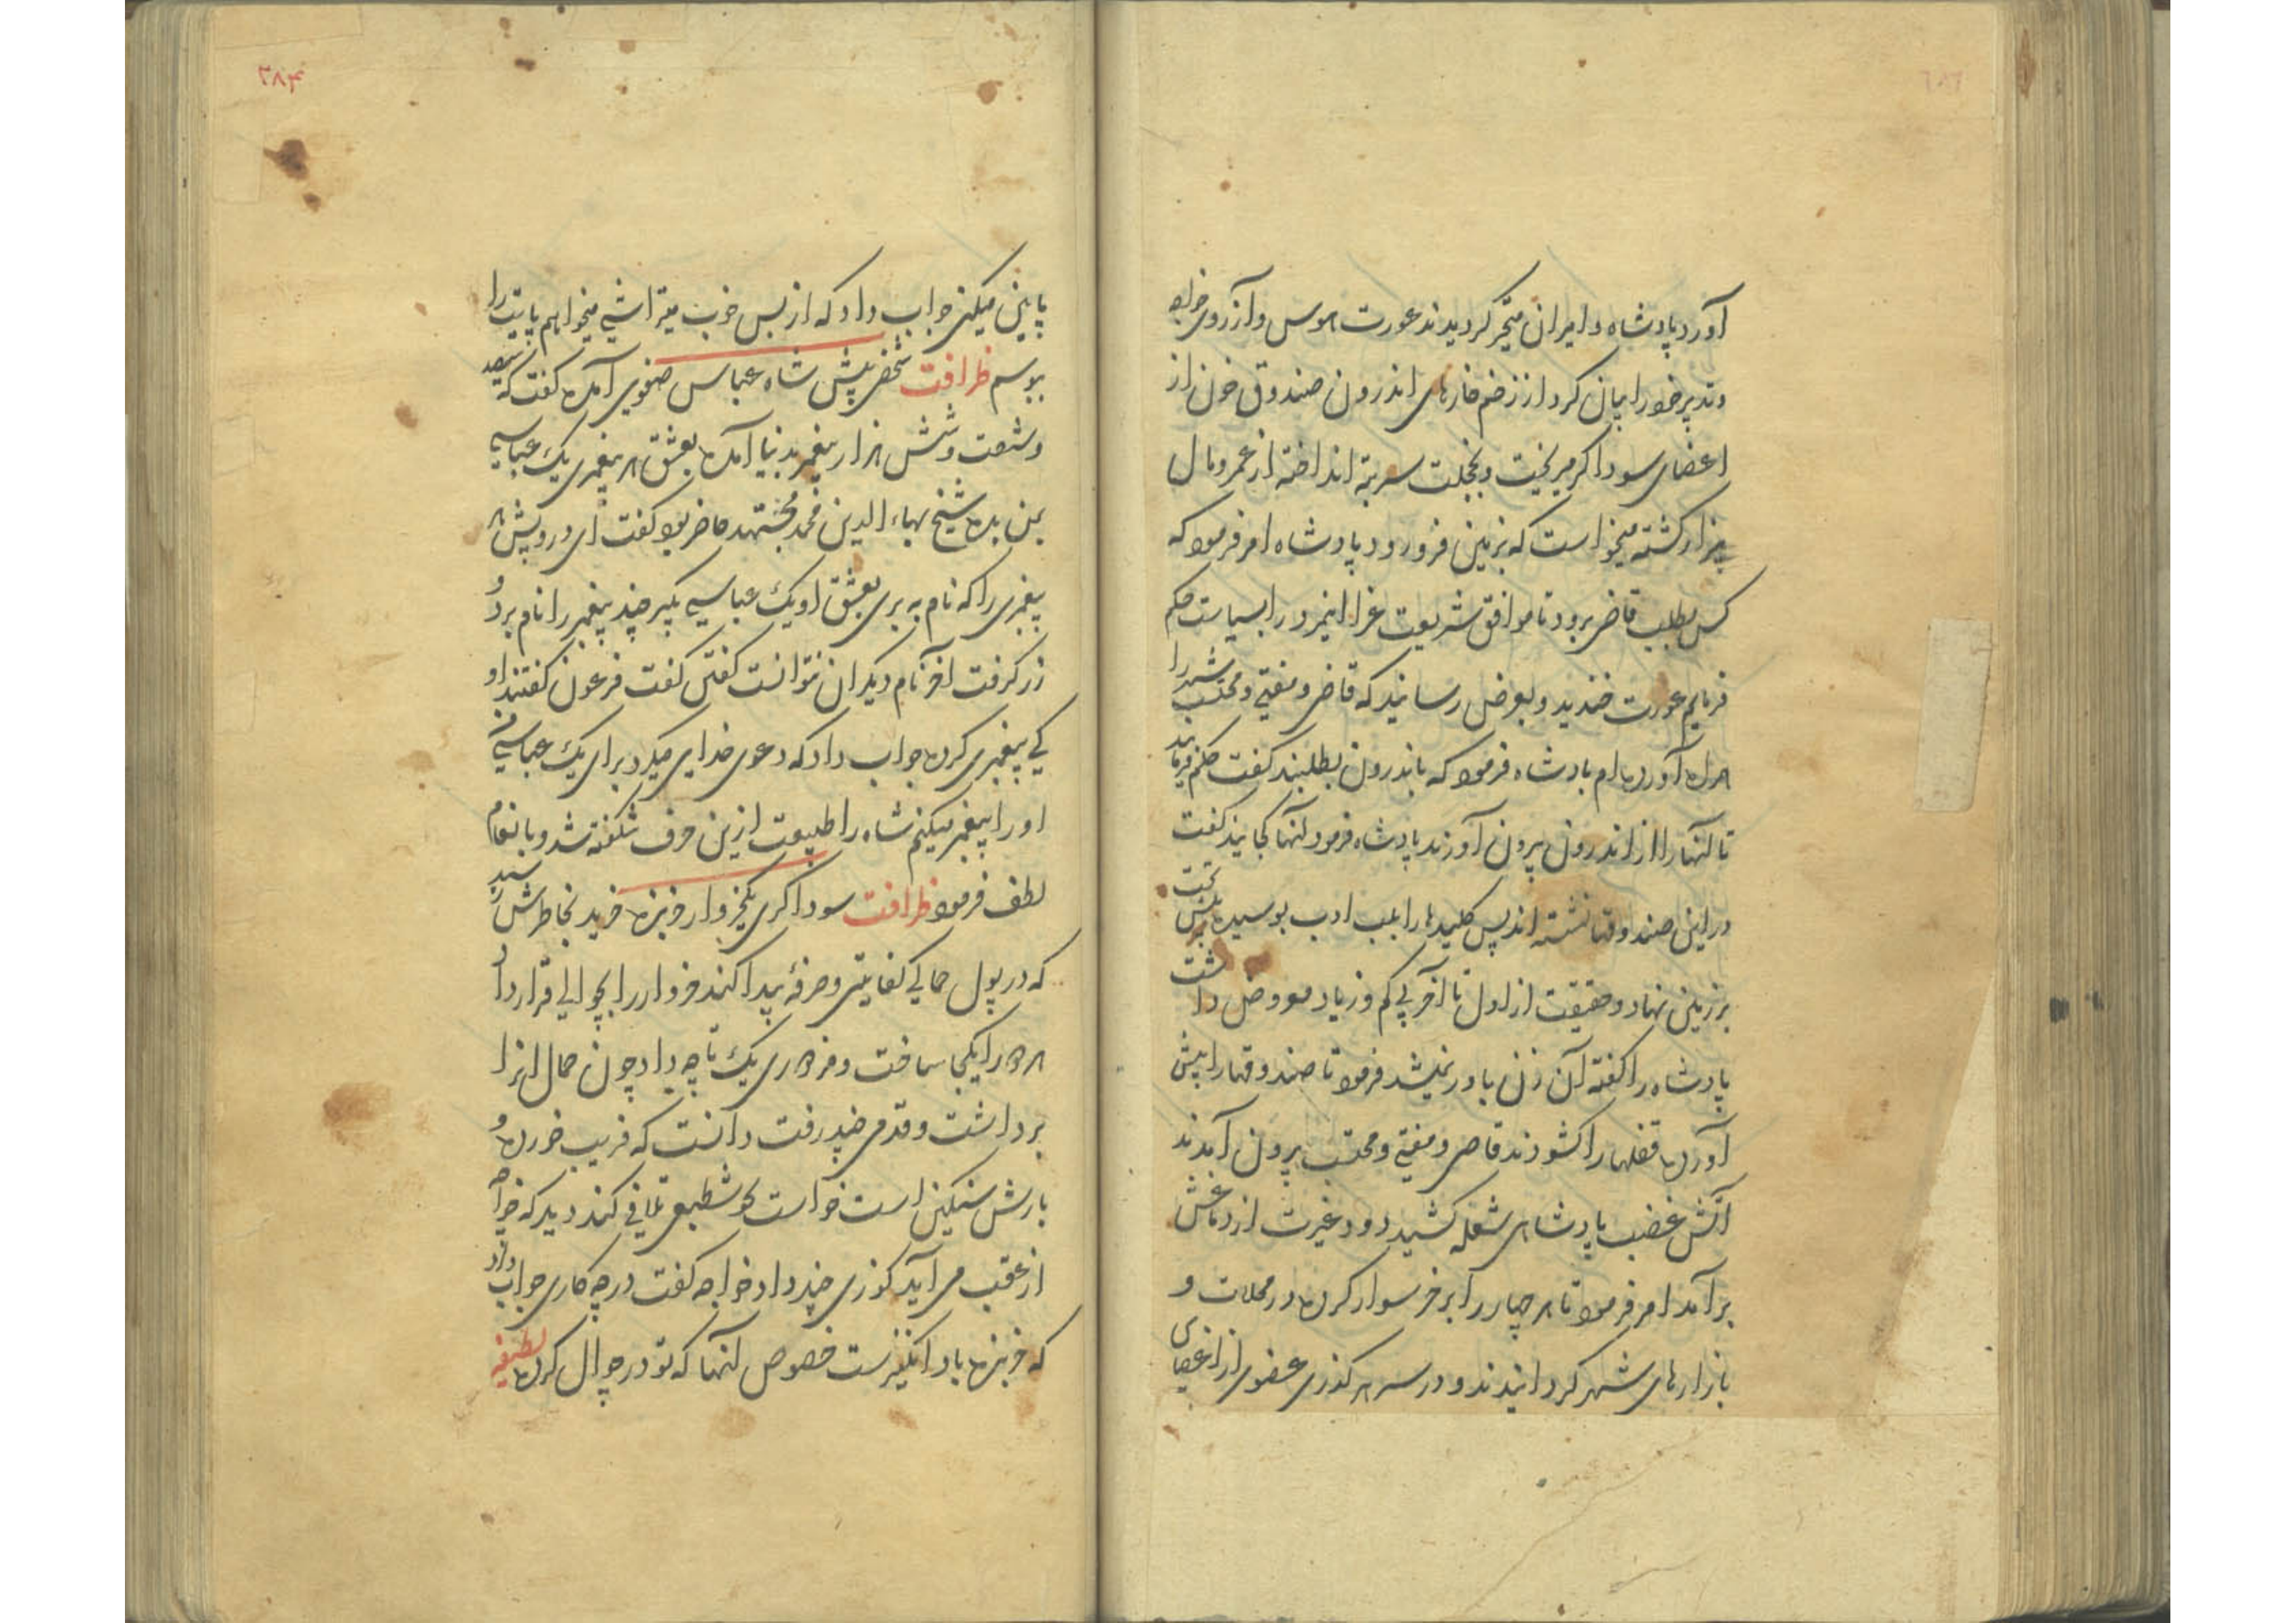 آورد پادشاه و امیران متحیر کردیدند عورت هوس و آرزوی خواجه
وتدبیر خود را بیان کرد از زخم خارهای اندرون صندوق خون از
اعضای سوداکر میریخت و بخجلت سر بته انداخته از عمر و مال
بیزار کشته میخواست که بزمین فرو رود پادشاه امر فرمود که
کس بطلب قاضی برود تا موافق شریعت غرا اینمرد را سیاست حکم
فرمایم عورت خندید و بعرض رسانید که قاضی و مفتی و محتسب شهر را
همراه آورده ام پادشاه فرمود که باندرون بطلبند کفت حکم فرمایند
تا آنها را از اندرون بیرون آورند پادشاه فرمود آنها کجایند کفت
در این صندوقها نشسته اند پس کلیدها را بلب ادب بوسیده پیش تخت
بر زمین نهاد و حقیقت از اول تا آخر بی کم و زیاد معروض داشت
پادشاه را کفته آن زن باور نمیشد فرمود تا صندوقها را پیش
آورده قفلها را کشودند قاضی و مفتی و محتسب بیرون آمدند
آتش غضب پادشاهی شعله کشید دود غیرت از دماغش
برآمد امر فرمود تا هر چهار را بر خر سوار کرده در محلات و
بازارهای شهر کردانیدند و در سر هر کذری عضوی از اعضای
۲۸۴
پایین میکنی جواب داد که از بس خوب میتراشی میخواهم پایت را
ببوسم ظرافت شخصی پیش شاه عباس صفوی آمده کفت که سیصد
و شصت و شش هزار پیغمبر بدنیا آمده بعشق هر پیغمبری یک عباسی
بمن بده شیخ بهاء الدین محمد مجتهد حاضر بود کفت ای درویش هر
پیغمبری را که نام به بری بعشق او یک عباسی بکیر چند پیغمبر را نام برد و
زر کرفت آخر نام دیکران نتوانست کفتن کفت فرعون کفتند او
کی پیغمبری کرده جواب داد که دعوی خدایی میکرد برای یک عباسی من
او را پیغمبر میکنم شاه را طبیعت ازین حرف شکفته شد و بانعام
لطف فرمود ظرافت سوداکری یکخروار خربزه خرید بخاطرش رسید
که در پول حمالی کفایتی و صرفهٔ پیدا کند خروار را بجوالی قرار داد و
هر دو را یکجا ساخت و مزدوری یک تاچه داد چون حمال انرا
برداشت و قدمی چند رفت دانست که فریب خورده و
بارش سنکین است خواست کوشطبعی تلافی کند دید که خواجه
از عقب می آید کوزی چند داد خواجه کفت در چه کاری جواب داد
که خربزه باد انکیزست خصوص آنها که تو در جوال کرده لطیفه